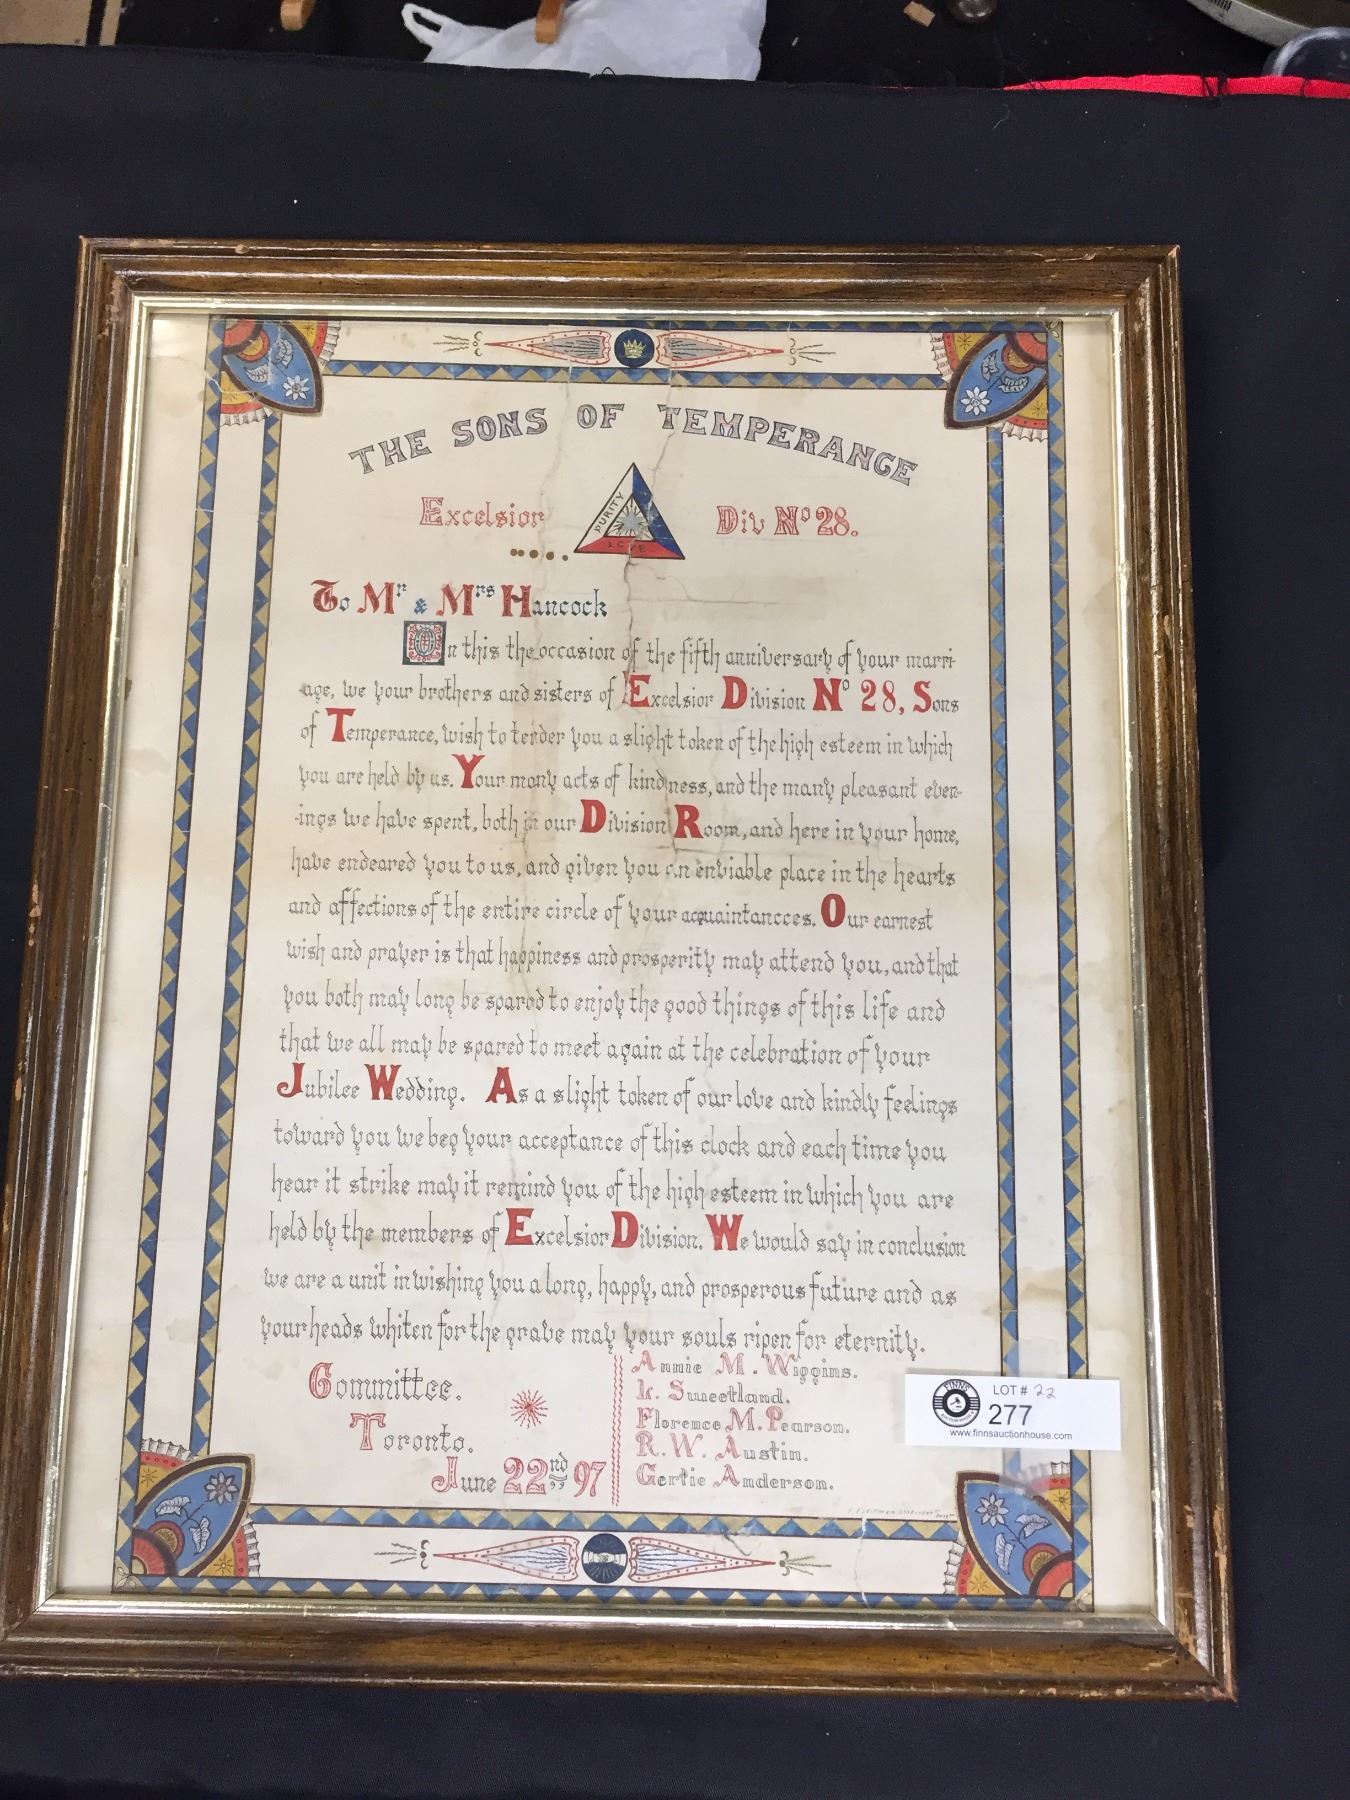 THE SONS OF TEMPERANCE
Excelsior Div Nº 28.
PURITY
LOVE
To Mr & Mrs Hancock
On this the occasion of the fifth anniversary of your marri-
age, we your brothers and sisters of Excelsior Division Nº 28, Sons
of Temperance, wish to tender you a slight token of the high esteem in which
you are held by us. Your many acts of kindness, and the many pleasant even-
-ings we have spent, both in our Division Room, and here in your home,
have endeared you to us, and given you an enviable place in the hearts
and affections of the entire circle of your acquaintancces. Our earnest
wish and prayer is that happiness and prosperity may attend you, and that
you both may long be spared to enjoy the good things of this life and
that we all may be spared to meet again at the celebration of your
Jubilee Wedding. As a slight token of our love and kindly feelings
toward you we beg your acceptance of this clock and each time you
hear it strike may it remind you of the high esteem in which you are
held by the members of Excelsior Division. We would say in conclusion
we are a unit in wishing you a long, happy, and prosperous future and as
your heads whiten for the grave may your souls ripen for eternity.
Committee.
Toronto.
June 22nd 97
Annie M. Wiggins.
L. Sweetland.
Florence M. Pearson.
R. W. Austin.
Gertie Anderson.
FINNS
AUCTION HOUSE
LOT # 22
277
www.finnsauctionhouse.com